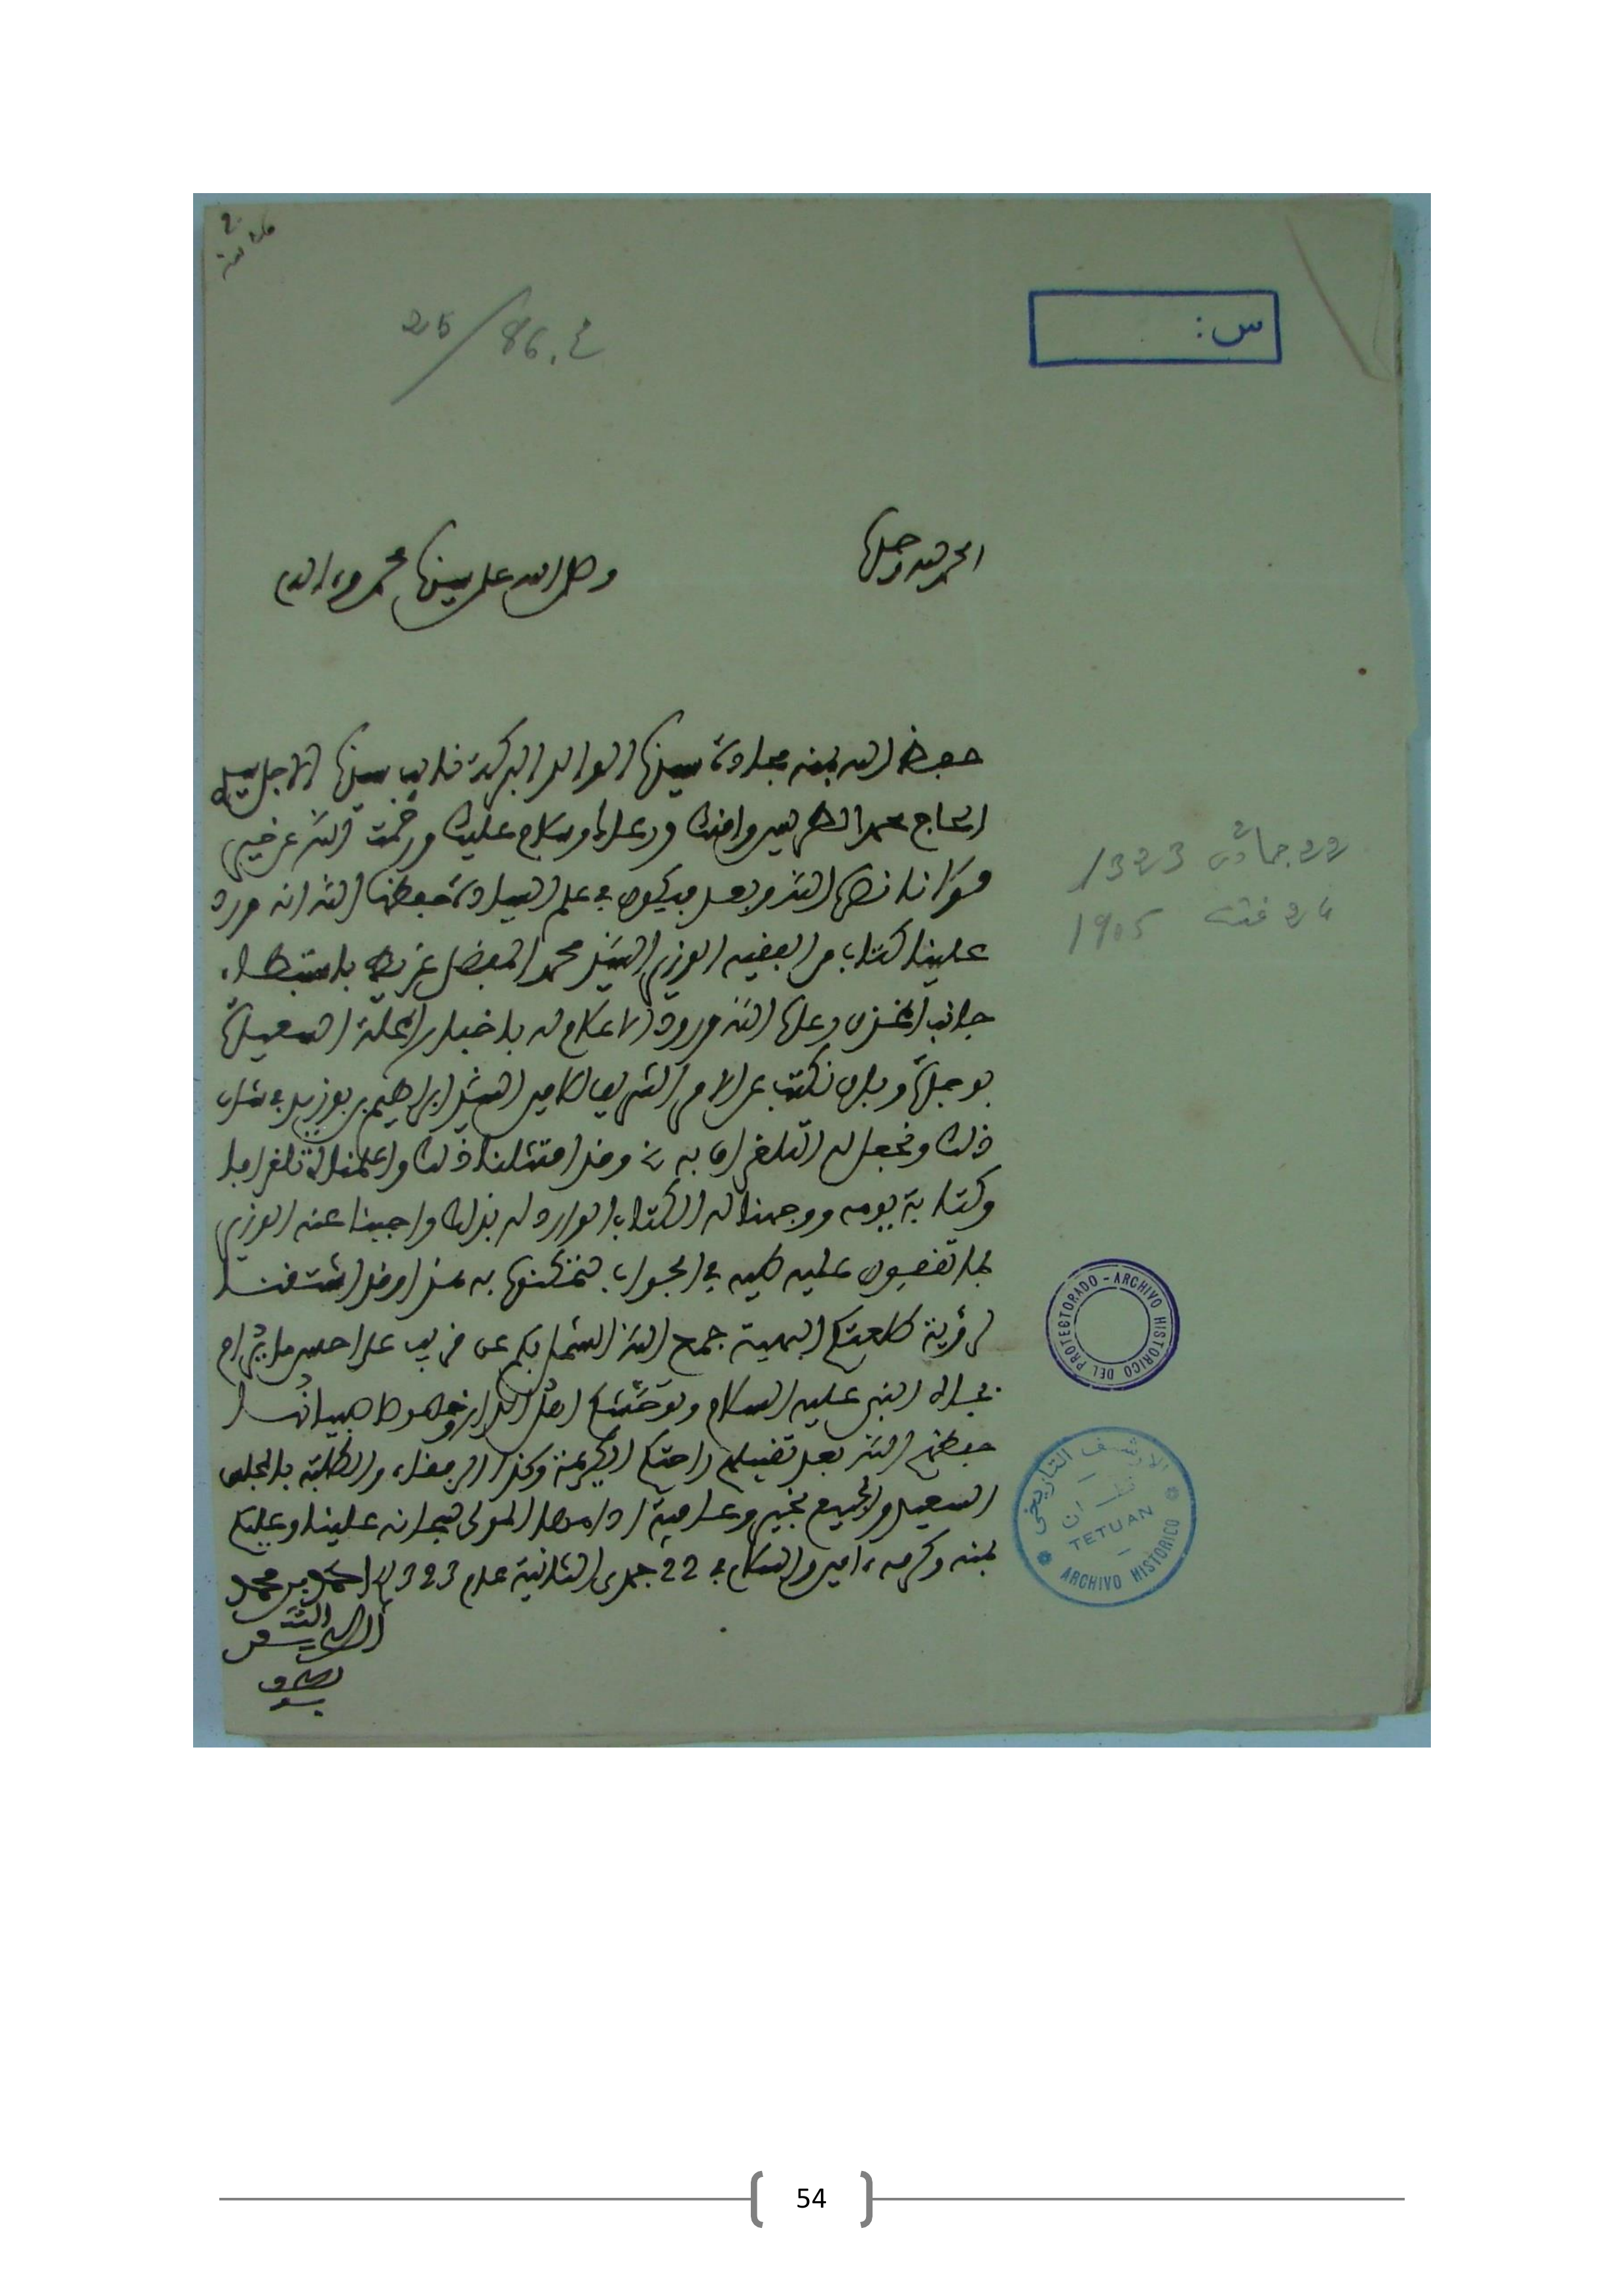 س:
25/86.ع
الحمد لله وحده
وصلى الله على سيدنا محمد وءاله
حفظ الله بمنه مجادة سيدنا الوالد البركة نائب سيدنا الاجل سيدي
الحاج محمد الطريس وامنك ورعاك وسلام عليك ورحمت الله عن خير
مولانا نصره الله وبعد فيكون في علم السيادة حفظها الله انه ورد
علينا كتاب من الفقيه الوزير السيد محمد المفضل غريط باستبطاء
جانب المخزن رعاه الله ورود الاعلام له باخبار المحلة السعيدة
بوجدة وبان نكتب عن الامر الشريف للامين السيد ابراهيم بن بوزيد في شان
ذلك ونجعل له التلغراف به وقد امتثلنا ذلك واعلمناه تلغرافيا
وكتابة بيومه ووجهنا له الكتاب الوارد له بذلك واجبنا عنه الوزير
بما تقفون عليه طيه في الجواب هذا وقد اشتقنا
لرؤية طلعتكم البهية جمع الله الشمل بكم عن قريب على احسن ما يرام
بجاه النبي عليه السلام اهل الدار
حفظهم الله بعد تقبيلهم راحتكم الكريمة وكذا الرفقاء والطلبة بالمجلس
السعيد والجميع بخير وعافية ادامها المولى سبحانه علينا وعليكم
بمنه وكرمه ءامين والسلام في 22 جمدى الثانية عام 1323 احمد بن محمد
الطريس
لطف الله به
22 جمادى 2 1323
24 غشت 1905
ARCHIVO HISTORICO DEL PROTECTORADO
الارشيف التاريخي
تطوان
TETUAN
ARCHIVO HISTORICO
54